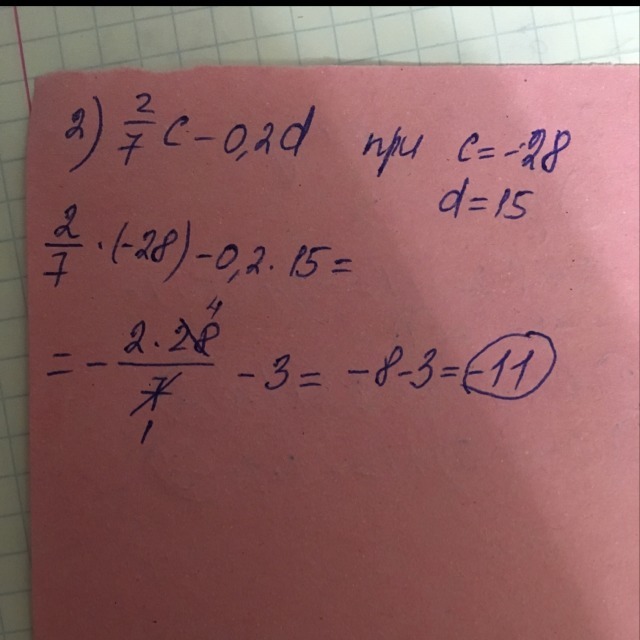 2) 2/7 c - 0,2d при c = -28
d = 15
2/7 · (-28) - 0,2 · 15 =
= - 2 · 28 4 / 7 1 - 3 = -8 - 3 = -11